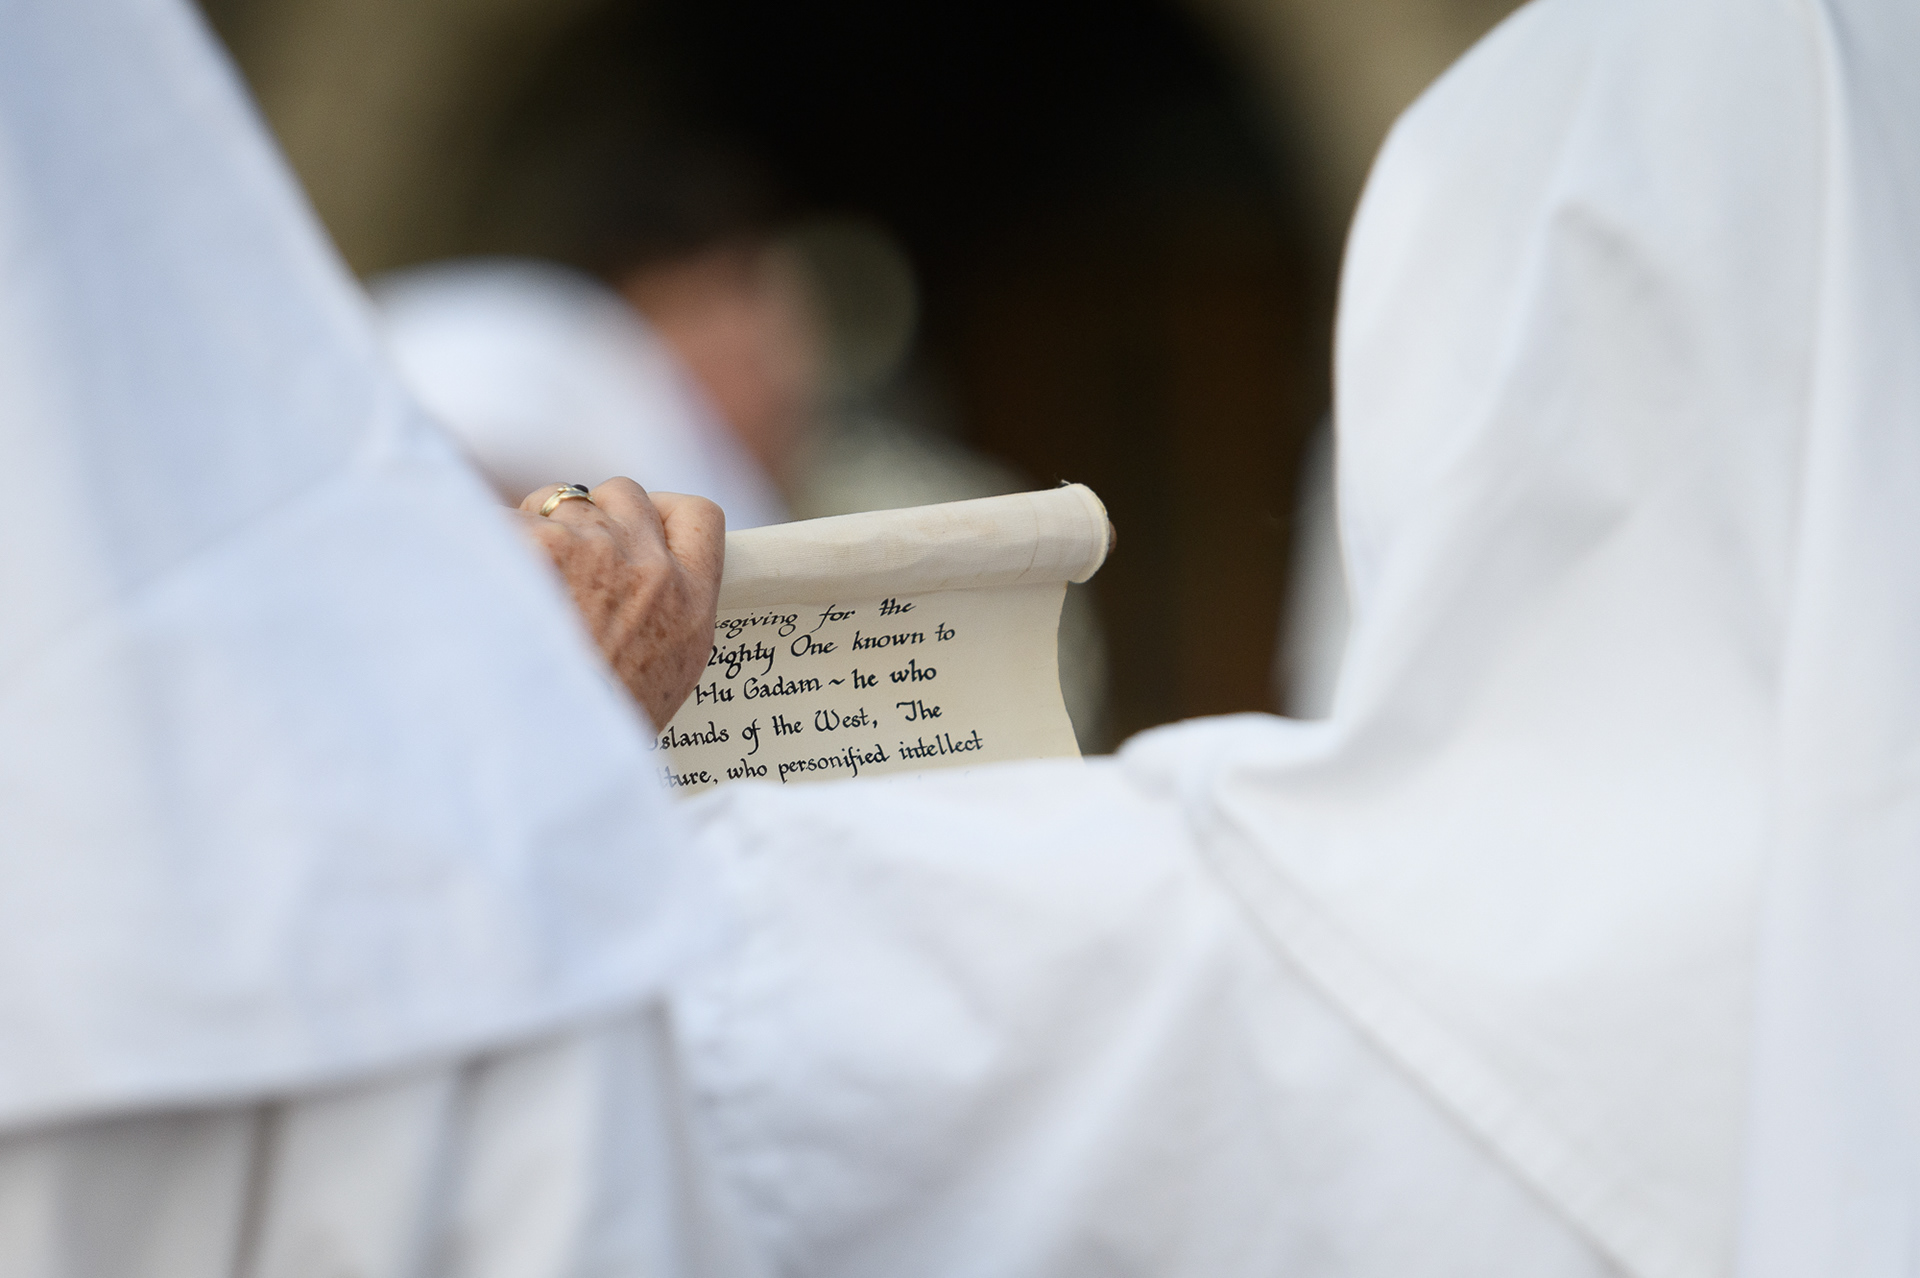 sgiving for the
Mighty One known to
Hu Gadarn ~ he who
Islands of the West, The
lture, who personified intellect